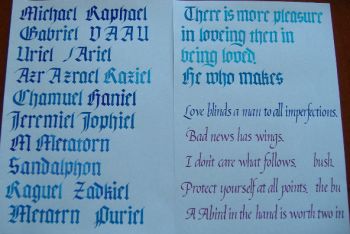 Michael Raphael
Gabriel VAAU
Uriel Ariel
Azr Azrael Raziel
Chamuel Haniel
Jeremiel Jophiel
M Metatorn
Sandalphon
Raguel Zadkiel
Metatrn Puriel
There is more pleasure
in loveing then in
being loved.
He who makes
Love blinds a man to all imperfections.
Bad news has wings.
I don't care what follows. bush.
Protect yourself at all points. the bu
A Abird in the hand is worth two in